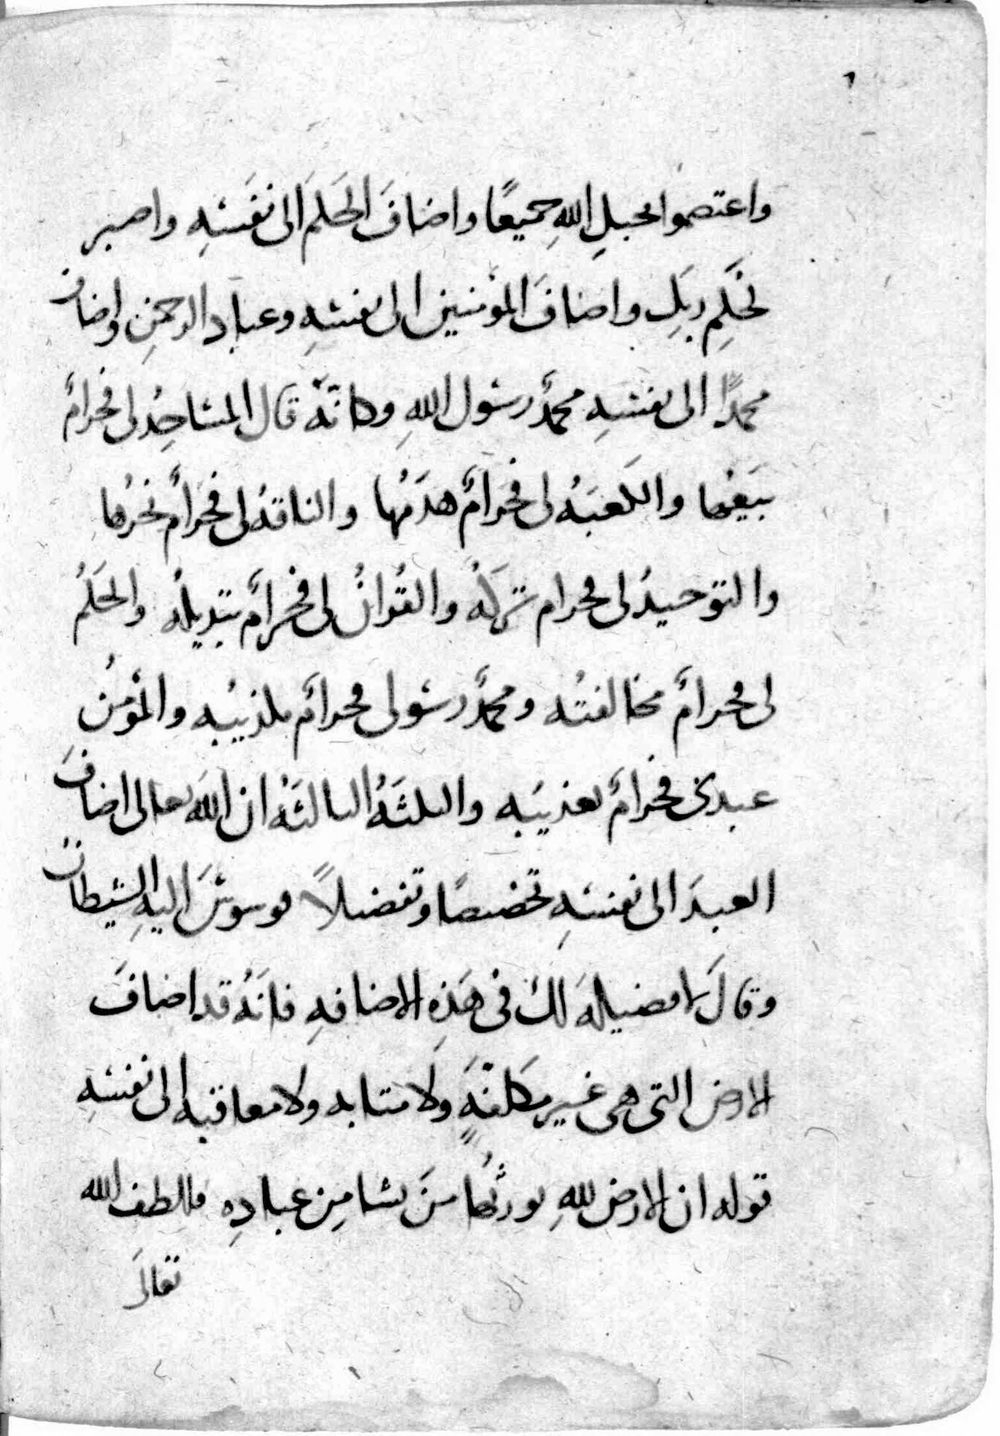 ٦
واعتصموا بحبلِ اللهِ جميعًا واضافَ الحكمَ الى نفسِهِ واصبر
لحكمِ ربكِ واضافَ المؤمنين الى نفسهِ وعبادَ الرحمنِ واضاف
محمدًا الى نفسهِ محمدٌ رسول اللهِ وكانهُ قال المساجدُ لى فحرامٌ
بيعُها والكعبَهُ لى فحرامٌ هدمُها والناقهُ لى فحرامٌ نحرُها
والتوحيدُ لى فحرام تركهُ والقُرانُ لى فحرامٌ تبديلُهُ والحكمُ
لى فحرامٌ مخالفتُه ومحمدٌ رسولى فحرامٌ تكذيبُه والمؤمنُ
عبدى فحرامٌ تعذيبُه والثلثَهُ الثالثَهُ ان اللهَ تعالى اضافَ
العبدَ الى نفسهِ تخصيصًا وتفضلاً فوسوسَ اليهِ الشيطان
وقالَ لا فضيلهَ لك فى هَذِهِ الاضافهِ فانهُ قد اضافَ
الارض التى هى غيرِ مكلفةٍ ولا مثابه ولا معاقبه الى نفسهِ
قوله ان الارضَ للهِ يورثُها مَن يشا مِن عبادِهِ فلطف الله
تعالى